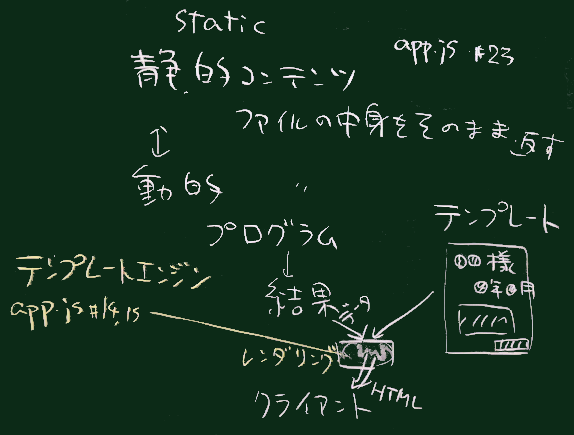 static
app.js #23
静的コンテンツ
ファイルの中身をそのまま返す
↕
動的 〃
プログラム
テンプレート
↓
結果データ
〇〇様
〇年〇月
テンプレートエンジン
app.js #14,15
レンダリング
HTML
クライアント